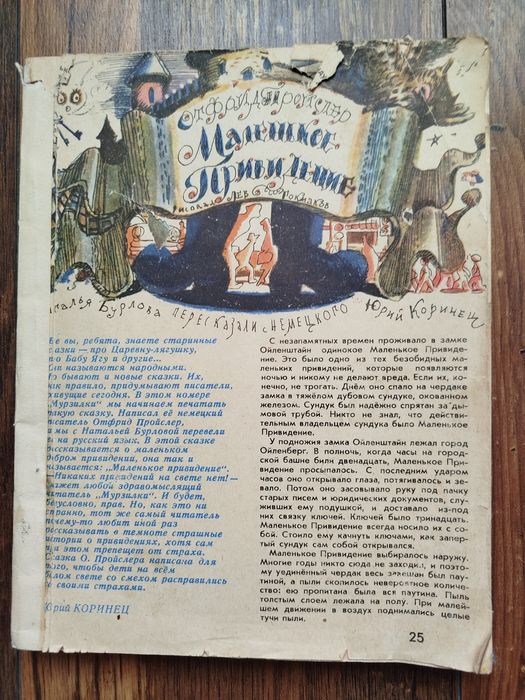 Отфрид Пройслер
Маленькое
Привидение
Рисовал Лев Токмаков
Наталья Бурлова пересказали с немецкого Юрий Коринец
Все вы, ребята, знаете старинные
сказки — про Царевну-лягушку,
про Бабу Ягу и другие...
Они называются народными.
Но бывают и новые сказки. Их,
как правило, придумывают писатели,
живущие сегодня. В этом номере
„Мурзилки“ мы начинаем печатать
такую сказку. Написал её немецкий
писатель Отфрид Пройслер,
а мы с Натальей Бурловой перевели
её на русский язык. В этой сказке
рассказывается о маленьком
добром привидении, она так и
называется: „Маленькое привидение“.
— Никаких привидений на свете нет! —
скажет любой здравомыслящий
читатель „Мурзилки“. И будет,
безусловно, прав. Но, как это ни
странно, тот же самый читатель
почему-то любит иной раз
рассказывать в темноте страшные
истории о привидениях, хотя сам
при этом трепещет от страха.
Сказка О. Пройслера написана для
того, чтобы дети на всём
белом свете со смехом расправились
со своими страхами.
Юрий КОРИНЕЦ
С незапамятных времен проживало в замке
Ойленштайн одинокое Маленькое Привиде-
ние. Это было одно из тех безобидных ма-
леньких привидений, которые появляются
ночью и никому не делают вреда. Если их, ко-
нечно, не трогать. Днём оно спало на чердаке
замка в тяжёлом дубовом сундуке, окованном
железом. Сундук был надёжно спрятан за ды-
мовой трубой. Никто не знал, что действи-
тельным владельцем сундука было Маленькое
Привидение.
У подножия замка Ойленштайн лежал город
Ойленберг. В полночь, когда часы на город-
ской башне били двенадцать, Маленькое При-
видение просыпалось. С последним ударом
часов оно открывало глаза, потягивалось и зе-
вало. Потом оно засовывало руку под пачку
старых писем и юридических документов, слу-
живших ему подушкой, и доставало из-под
них связку ключей. Ключей было тринадцать.
Маленькое Привидение всегда носило их с со-
бой. Стоило ему качнуть ключами, как запер-
тый сундук сам собой открывался.
Маленькое Привидение выбиралось наружу.
Многие годы никто сюда не заходил, и поэто-
му уединённый чердак весь завешан был пау-
тиной, а пыли скопилось невероятное количе-
ство: ею пропитана была вся паутина. Пыль
толстым слоем лежала на полу. При малей-
шем движении в воздух поднимались целые
тучи пыли.
25